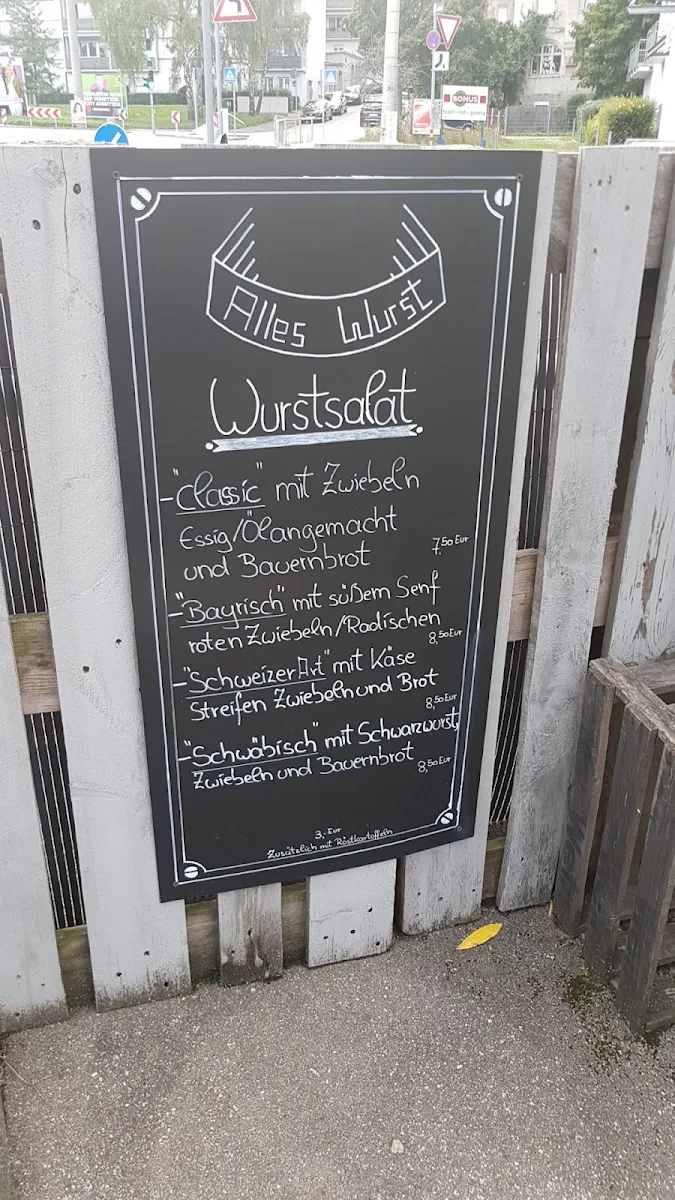 BONUS
Alles Wurst
Wurstsalat
-"Classic" mit Zwiebeln
Essig/Ölangemacht
und Bauernbrot
7,50 Eur
-"Bayrisch" mit süßem Senf
roten Zwiebeln/Radischen
8,50 Eur
-"Schweizer Art" mit Käse
Streifen Zwiebeln und Brot
8,50 Eur
-"Schwäbisch" mit Schwarzwurst,
Zwiebeln und Bauernbrot
8,50 Eur
3,- Eur
Zusätzlich mit Röstkartoffeln